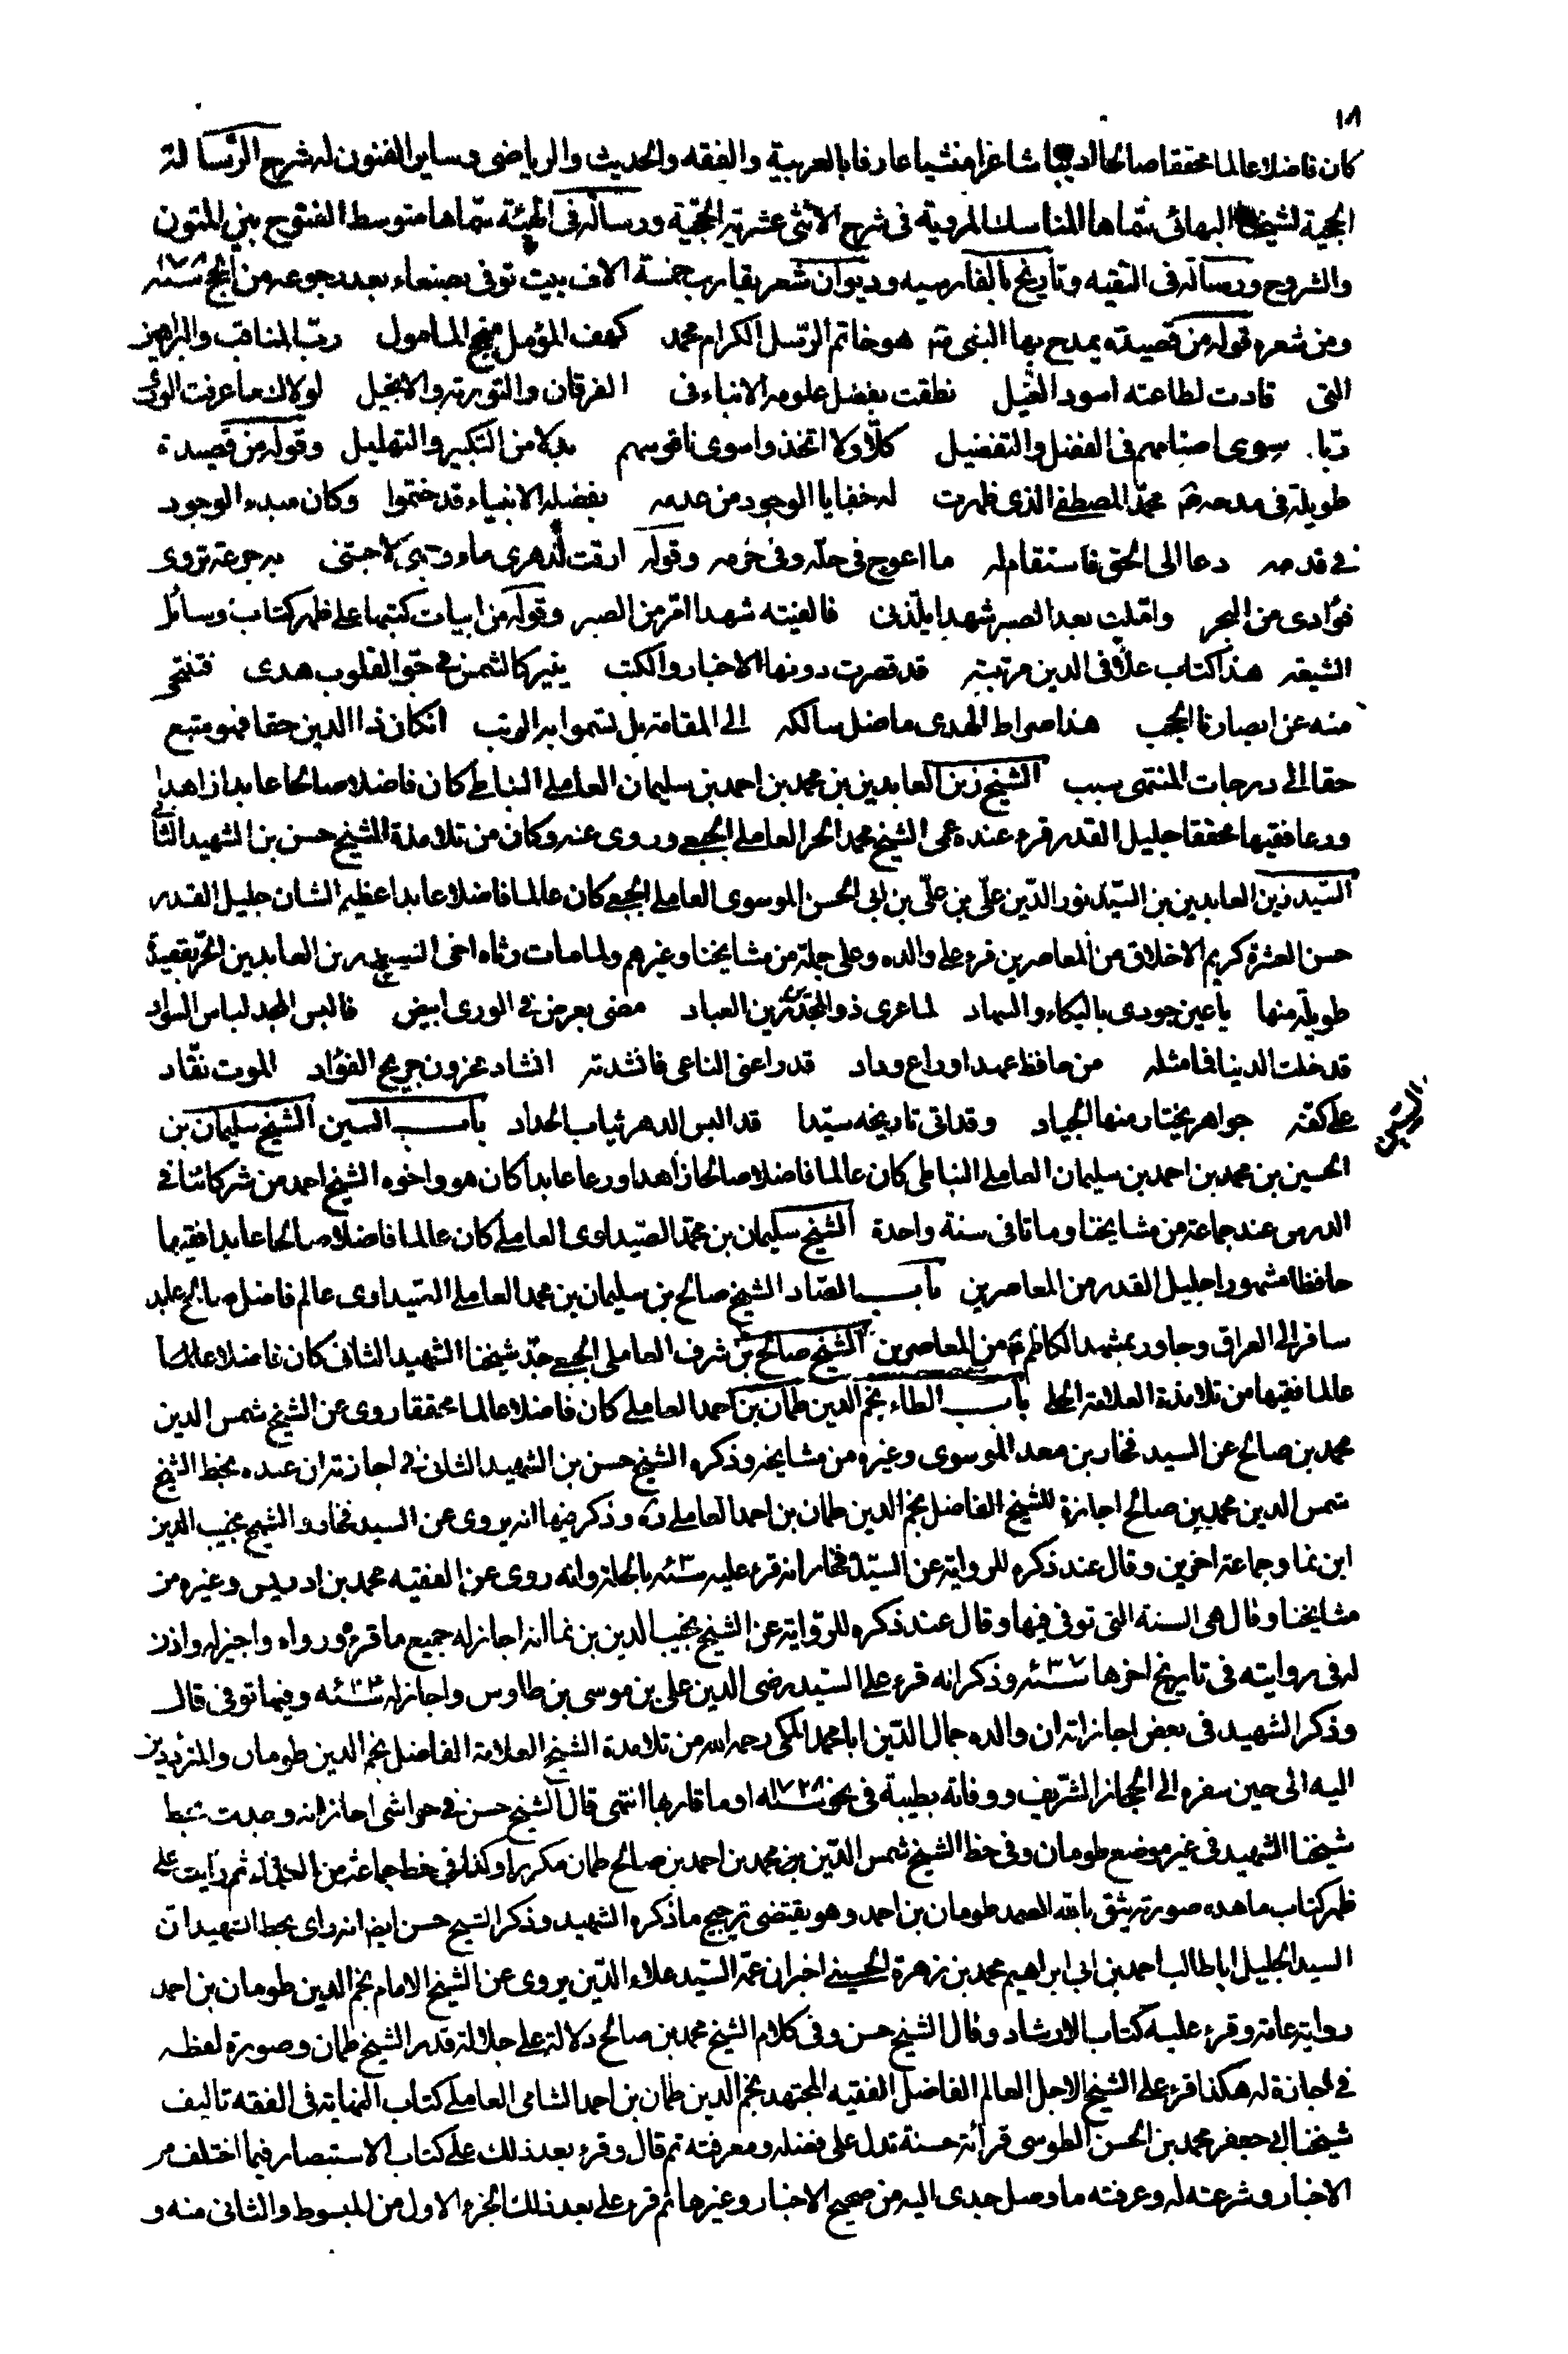 ١٨
كان فاضلا عالما محققا صالحا اديبا شاعرا منشيا عارفا بالعربية والفقه والحديث والرياضى وساير الفنون له شرح الرسالة
الحجية لشيخنا البهائى سماها المناسك المروية فى شرح الاثنى عشرية الحجية ورسالة فى الهيئة سماها متوسط الفتوح بين المتون
والشروح ورسالة فى التقيه وتاريخ بالفارسيه وديوان شعر يقارب خمسة الاف بيت توفى بصنعاء بعد رجوعه من الحج سنة ١٠٧٨
ومن شعره قوله من قصيدة يمدح بها النبى ص هو خاتم الرسل الكرام محمد كهف المؤمل منجح المامول رب المناقب والبراهين
التى قادت لطاعته اسود الغيل نطقت بفضل علومه الانباء فى الفرقان والتورية والانجيل لولاك ما عرفت الورى
ربا سوى اصنامهم فى الفضل والتفضيل كلا ولا اتخذوا سوى ناقوسهم بدلا من التكبير والتهليل وقوله من قصيدة
طويلة فى مدحه ص محمد المصطفى الذى ظهرت له خفايا الوجود من عدمه بفضله الانبياء قد ختموا وكان مبدء الوجود
فى قدمه دعا الى الحق فاستقام له ما اعوج فى حله وفى حرمه وقوله ارقت لدهرى ماء وجهى لاجتنى به جرعة تروى
فؤادى من البحر واملت بعد الصبر شهدا يلذنى فالفيته شهدا امر من الصبر وقوله من ابيات كتبها على ظهر كتاب وسائل
الشيعه هذا كتاب علا فى الدين مرتبته قد قصرت دونها الاخبار والكتب ينير كالشمس فى جو القلوب هدى فتنتحى
منه عن ابصارنا الحجب هذا صراط الهدى ما ضل سالكه الى المقامة بل تسموا به الرتب ان كان ذا الدين حقا فهو متبع
حقا الى درجات المنتهى سبب الشيخ زين العابدين بن محمد بن احمد بن سليمان العاملى النباطى كان فاضلا صالحا عابدا زاهدا
ورعا فقيها محققا جليل القدر قرء عنده عمى الشيخ محمد الحر العاملى الجبعى وروى عنه وكان من تلامذة الشيخ حسن بن الشهيد الثانى
السيد زين العابدين بن السيد نور الدين على بن على بن ابى الحسن الموسوى العاملى الجبعى كان عالما فاضلا عابدا عظيم الشان جليل القدر
حسن العشرة كريم الاخلاق من المعاصرين قرء على والده وعلى جملة من مشايخنا وغيرهم ولما مات رثاه اخى الشيخ زين العابدين الحر بقصيدة
طويلة منها يا عين جودى بالبكاء والسهاد لما عرى ذو المجد زين العباد مضى بعرض فى الورى ابيض فالبس المجد لباس السواد
قد خلت الدنيا فما مثله من حافظ عهدا وراع وداد قد راعنى الناعى فانشدته انشاد محزون جريح الفؤاد الموت نقاد
على كفه جواهر يختار منها الجياد وقد اتى تاريخه سيدا قد البس الدهر ثياب الحداد باب السين الشيخ سليمان بن
السين
الحسين بن محمد بن احمد بن سليمان العاملى النباطى كان عالما فاضلا صالحا زاهدا ورعا عابدا كان هو واخوه الشيخ احمد من شركائنا فى
الدرس عند جماعة من مشايخنا وماتا فى سنة واحدة الشيخ سليمان بن محمد الصيداوى العاملى كان عالما فاضلا صالحا عابدا فقيها
حافظا مشهورا جليل القدر من المعاصرين باب الصاد الشيخ صالح بن سليمان بن محمد العاملى الصيداوى عالم فاضل صالح عابد
سافر الى العراق وجاور بمشهد الكاظم ع من المعاصرين الشيخ صالح بن شرف العاملى الجبعى جد شيخنا الشهيد الثانى كان فاضلا عالما
عالما فقيها من تلامذة العلامة الحلى باب الطاء نجم الدين طمان بن احمد العاملى كان فاضلا عالما محققا روى عن الشيخ شمس الدين
محمد بن صالح عن السيد فخار بن معد الموسوى وغيره من مشايخه وذكره الشيخ حسن بن الشهيد الثانى فى اجازته ان عنده بخط الشيخ
شمس الدين محمد بن صالح اجازة للشيخ الفاضل نجم الدين طمان بن احمد العاملى ره وذكر فيها انه يروى عن السيد فخار والشيخ نجيب الدين
ابن نما وجماعة اخرين وقال عند ذكره للرواية عن السيد فخار انه قرء عليه سنة ٦٣٠ بالحلة وانه روى عن الفقيه محمد بن ادريس وغيره من
مشايخنا وقال هى السنة التى توفى فيها وقال عند ذكره للرواية عن الشيخ نجيب الدين بن نما انه اجاز له جميع ما قرءه ورواه واجيز له واذن
له فى روايته فى تاريخ اخرها سنة ٦٣٧ وذكر انه قرء على السيد رضى الدين على بن موسى بن طاوس واجاز له سنة وفيها توفى قال
وذكر الشهيد فى بعض اجازاته ان والده جمال الدين ابا محمد المكى رحمه الله من تلامذة الشيخ العلامة الفاضل نجم الدين طومان والمترددين
اليه الى حين سفره الى الحجاز الشريف ووفاته بطيبة فى نحو سنة ٧٢٨ او ما قاربها انتهى قال الشيخ حسن فى حواشى اجازاته وجدت بخط
شيخنا الشهيد فى غير موضع طومان وفى خط الشيخ شمس الدين بن محمد بن احمد بن صالح طمان مكررا وكذا فى خط جماعة من العلماء ثم رايت على
ظهر كتاب ما هذه صورته يثق بالله الصمد طومان بن احمد وهو يقتضى ترجيح ما ذكره الشهيد وذكر الشيخ حسن ايضا انه راى بخط الشهيد ان
السيد الجليل ابا طالب احمد بن ابى ابراهيم محمد بن زهرة الحسينى اخبر ان عمه السيد علاء الدين يروى عن الشيخ الامام نجم الدين طومان بن احمد
رواية عامة وقرء عليه كتاب الارشاد وقال الشيخ حسن وفى كلام الشيخ محمد بن صالح دلالة على جلالة قدر الشيخ طمان وصورة لفظه
فى اجازة له هكذا قرء على الشيخ الاجل العالم الفاضل الفقيه المجتهد نجم الدين طمان بن احمد الشامى العاملى كتاب النهاية فى الفقه تاليف
شيخنا ابى جعفر محمد بن الحسن الطوسى قرائة حسنة تدل على فضله ومعرفته ثم قال وقرء بعد ذلك على كتاب الاستبصار فيما اختلف من
الاخبار وشرعته له وعرفته ما وصل جهدى اليه من صحيح الاخبار وغيرها ثم قرء على بعد ذلك الجزء الاول من المبسوط والثانى منه و